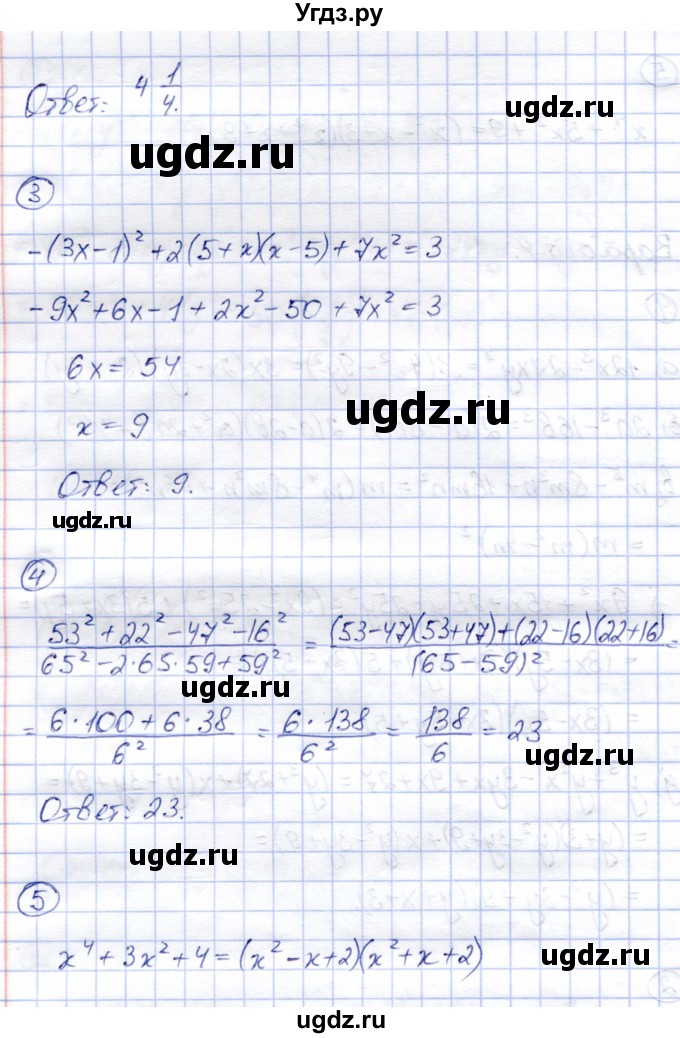 Угдз.ру
Ответ: 4 1/4.
ugdz.ru
3
-(3x-1)² + 2(5+x)(x-5) + 7x² = 3
-9x² + 6x - 1 + 2x² - 50 + 7x² = 3
6x = 54
ugdz.ru
x = 9
Ответ: 9.
ugdz.ru
4
(53² + 22² - 47² - 16²)/(65² - 2·65·59 + 59²) = ((53-47)(53+47)+(22-16)(22+16))/((65-59)²) =
ugdz.ru
= (6·100 + 6·38)/6² = (6·138)/6² = 138/6 = 23
ugdz.ru
Ответ: 23.
ugdz.ru
5
x⁴ + 3x² + 4 = (x² - x + 2)(x² + x + 2)
ugdz.ru
ugdz.ru